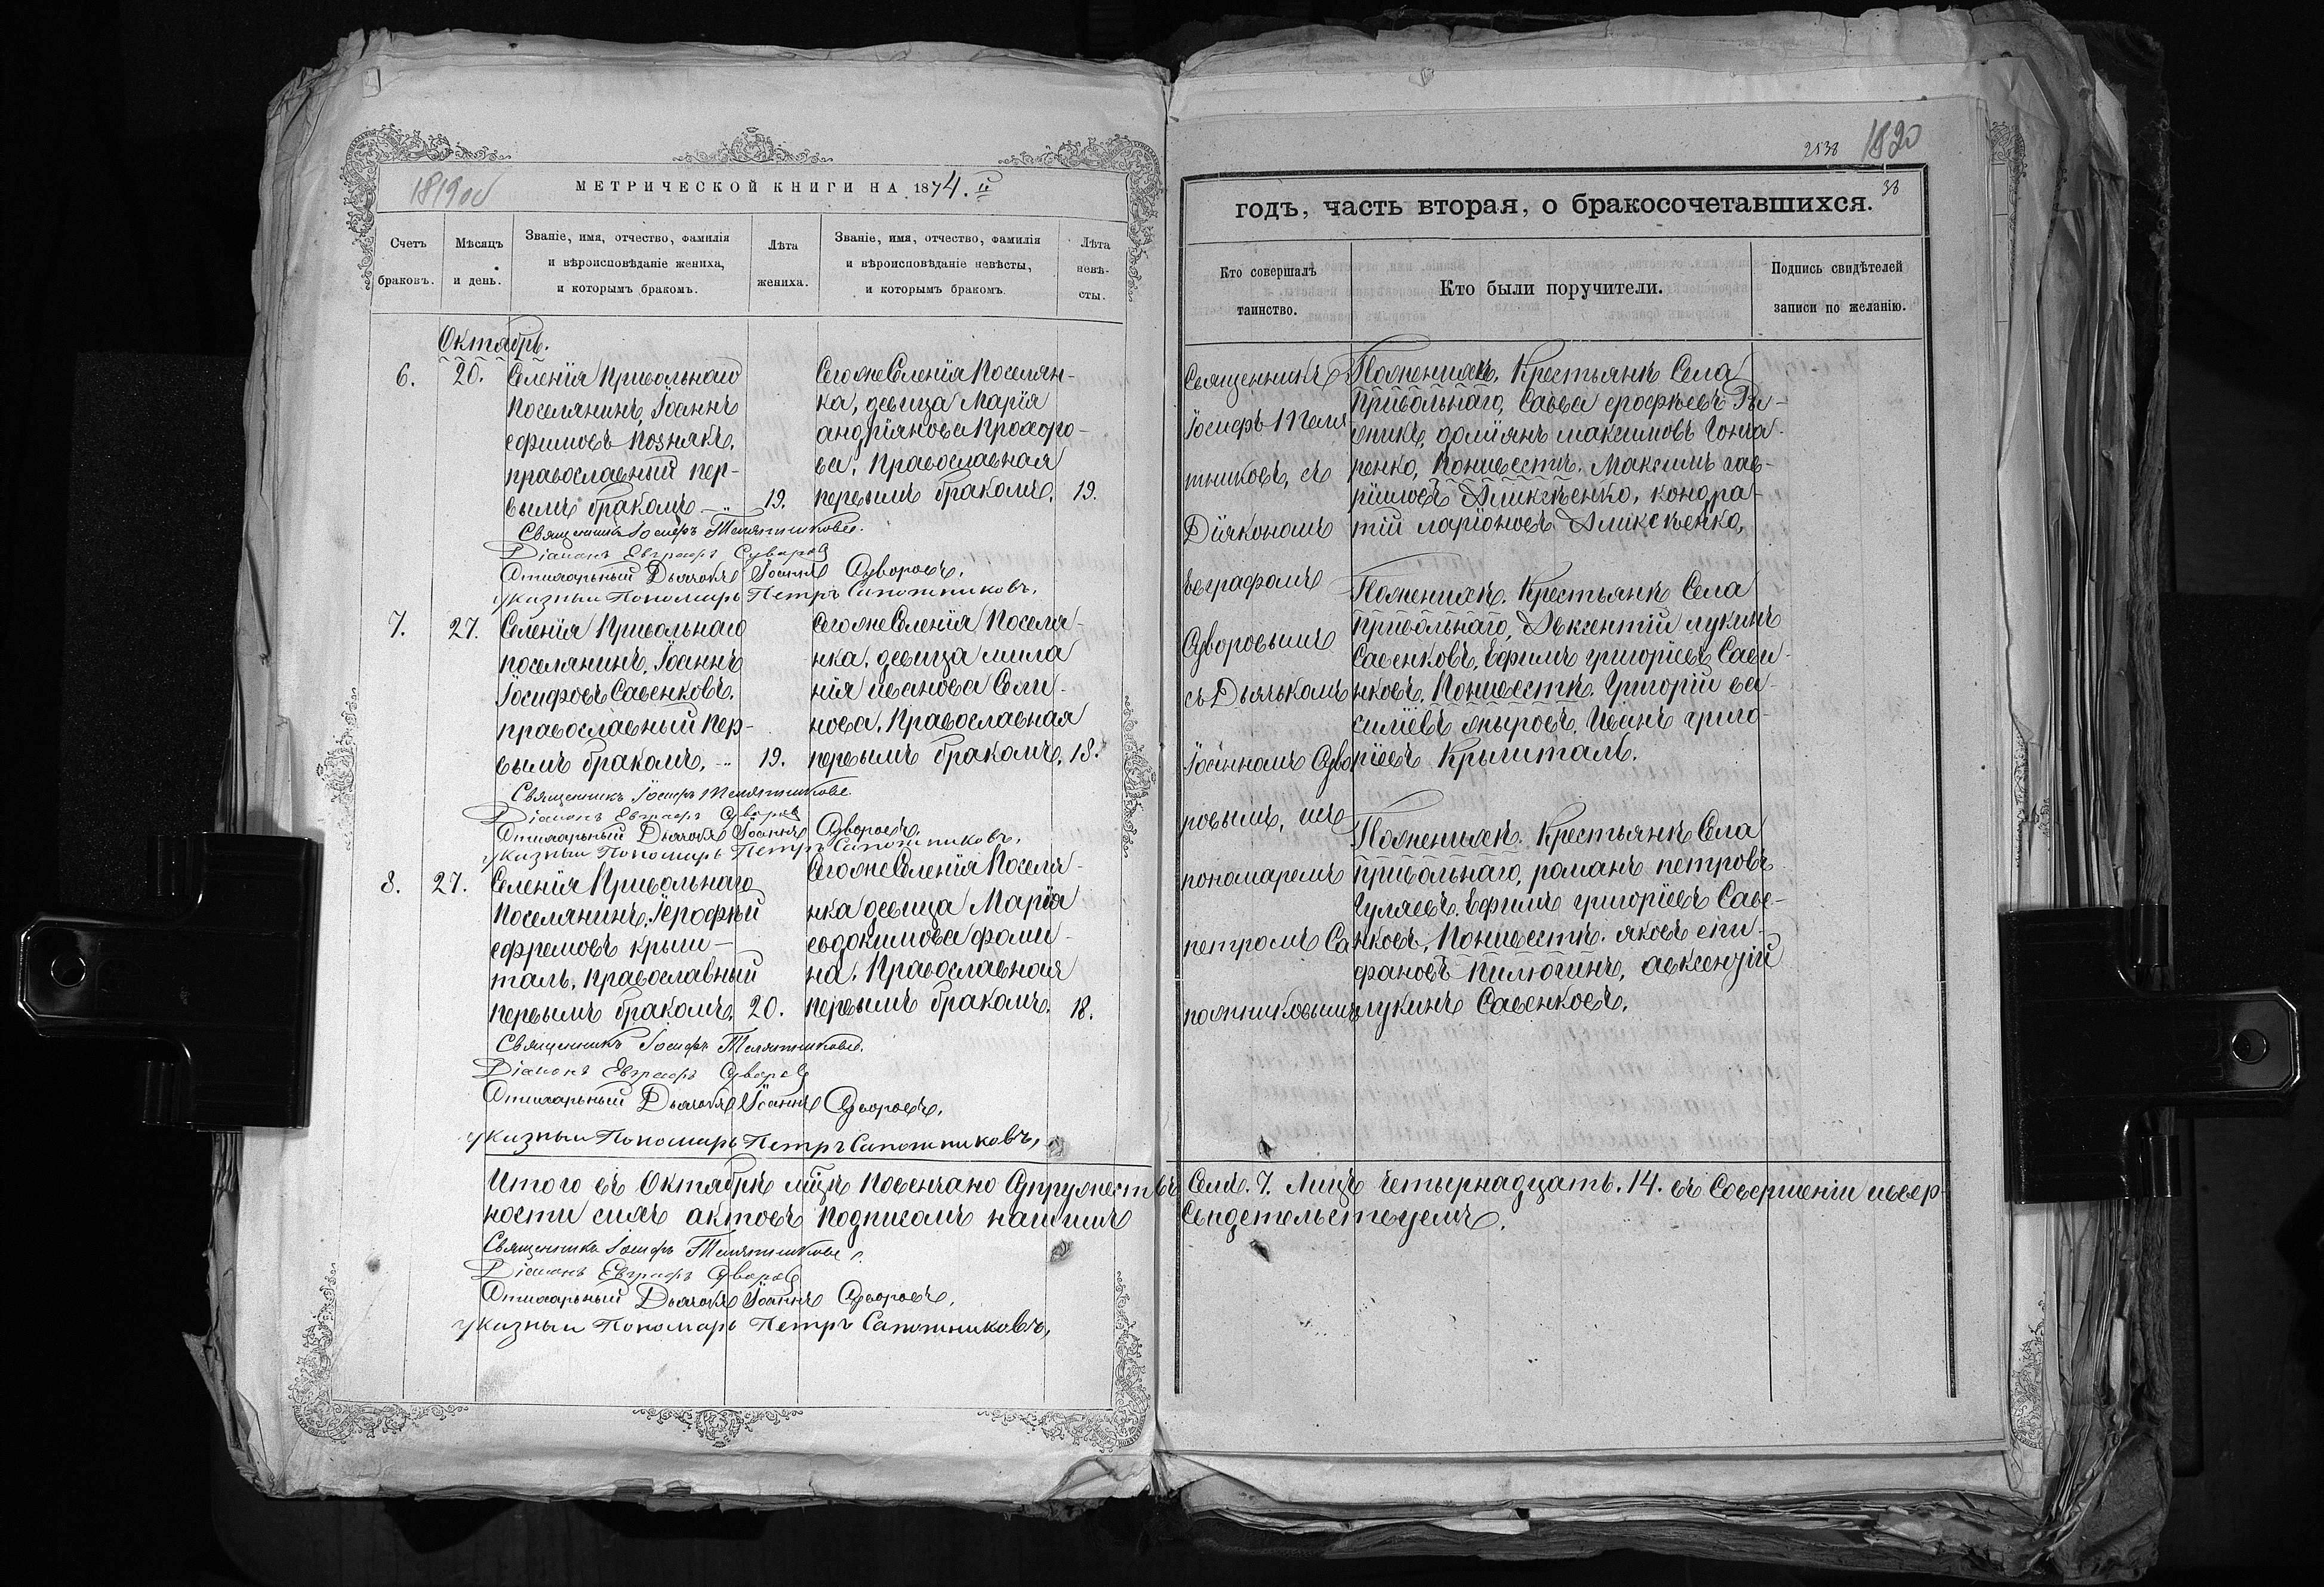 1819 об
МЕТРИЧЕСКОЙ КНИГИ НА 1874. II
Счетъ браковъ.
Мѣсяцъ и день.
Званіе, имя, отчество, фамилія и вѣроисповѣданіе жениха, и которымъ бракомъ.
Лѣта жениха.
Званіе, имя, отчество, фамилія и вѣроисповѣданіе невѣсты, и которымъ бракомъ.
Лѣта невѣсты.
Октябрь.
6. 20.
Селенія Привольнаго
Поселянинъ, Іоаннъ
ефимовъ Познякъ,
православный пер-
вымъ бракомъ 19.
Сегоже Селенія Поселян-
ка, девица Марія
андріянова Прохоро-
ва, Православная
первымъ бракомъ, 19.
Священникъ Іосифъ Телятниковъ.
Діаконъ Евграфъ Суворовъ
Стихарный Дьячокъ Іоаннъ Суворовъ,
указный Пономарь Петръ Сапожниковъ,
7. 27.
Селенія Привольнаго
поселянинъ, Іоаннъ
Іосифовъ Савенковъ,
православный пер-
вымъ бракомъ, 19.
Сегоже Селенія Поселя-
нка, девица мила
нія иванова Сели-
нова, Православная
первымъ бракомъ, 18.
Священникъ Іосифъ Телятниковъ.
Діаконъ Евграфъ Суворовъ
Стихарный Дьячокъ Іоаннъ Суворовъ,
указный Пономарь Петръ Сапожниковъ,
8. 27.
Селенія Привольнаго
Поселянинъ, Іерофѣй
ефремовъ крыш-
таль, Православный
первымъ бракомъ, 20.
Сегоже Селенія Поселя-
нка девица Марія
евдокимова фоми-
на, Православная
первымъ бракомъ, 18.
Священникъ Іосифъ Телятниковъ.
Діаконъ Евграфъ Суворовъ
Стихарный Дьячокъ Іоаннъ Суворовъ,
указный Пономарь Петръ Сапожниковъ,
Итого въ Октябрѣ м-цѣ Повенчано Супружествъ
ности сихъ актовъ Подписомъ нашимъ
Священникъ Іосифъ Телятниковъ
Діаконъ Евграфъ Суворовъ
Стихарный Дьячокъ Іоаннъ Суворовъ,
указный Пономарь Петръ Сапожниковъ,
2538 1820
38
годъ, часть вторая, о бракосочетавшихся.
Кто совершалъ таинство.
Кто были поручители.
Подпись свидѣтелей записи по желанію.
Священникъ
Іосифъ Теля
тниковъ, съ
Діякономъ
Евграфомъ
Суворовымъ
съ Дьячькомъ
Іоанномъ Суво
ровымъ, и съ
пономаремъ
петромъ Са
пожниковымъ
Пожениxѣ, Крестьянѣ Села
Привольнаго, Савва ерофѣевъ
домїянъ максимовъ Гонча-
ренко, Поневестѣ. Максимъ гав-
рїиловъ Аликсѣенко, кондра-
тїй ларїоновъ Аликсѣенко,
Пожениxѣ. Крестьянѣ Села
Привольнаго, Авксентїй лукинъ
Савенковъ, Ефимъ григорїевъ Саве-
нковъ, Поневестѣ. Григорїй ва-
силїевъ Иванъ григо-
рїевъ Крышталь.
Пожениxѣ. Крестьянѣ Села
Привольнаго, романъ петровъ
Гуляевъ, Ефимъ григорїевъ Саве-
нковъ, Поневестѣ. яковъ епи-
фановъ Пилюгинъ, авксентїй
лукинъ Савенковъ,
Семь. 7. Лицъ Четырнадцать. 14. въ Совершеніи ивер-
Свидетельствуемъ.